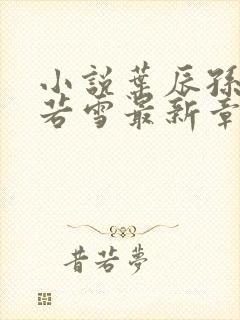 小説葉辰孫
若雪最新章
昔若夢